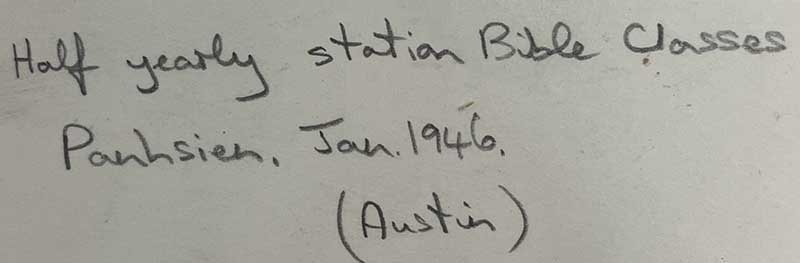 Half yearly station Bible Classes
Panhsien, Jan. 1946.
(Austin)